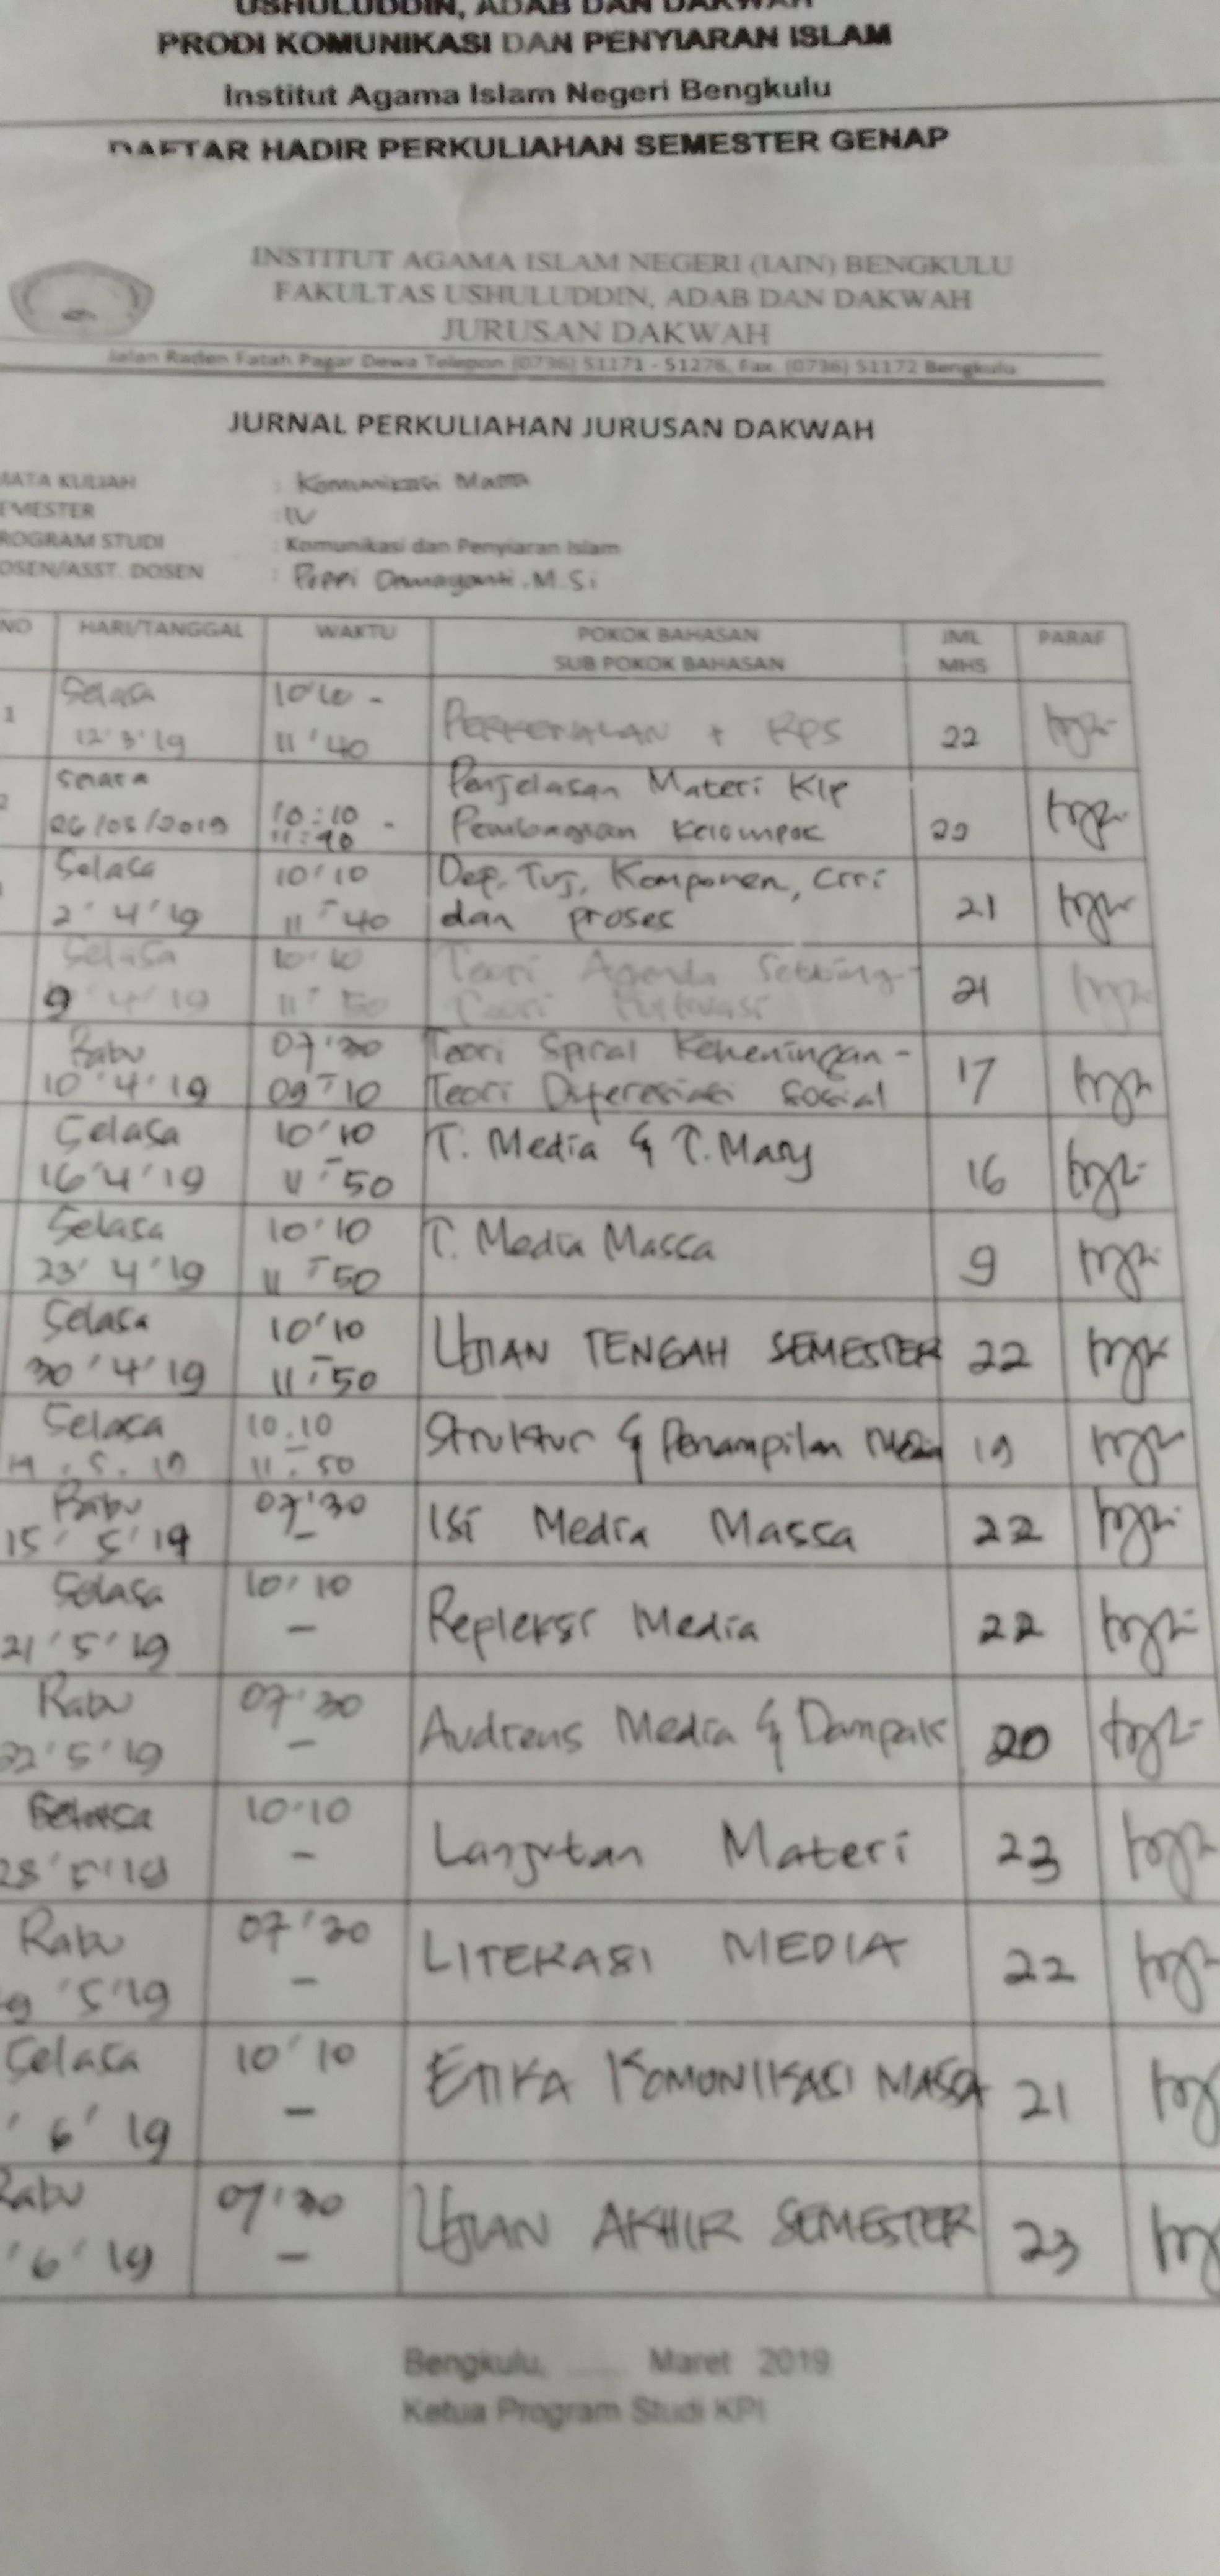 USHULUDDIN, ADAB DAN DAKWAH
PRODI KOMUNIKASI DAN PENYIARAN ISLAM
Institut Agama Islam Negeri Bengkulu
DAFTAR HADIR PERKULIAHAN SEMESTER GENAP
INSTITUT AGAMA ISLAM NEGERI (IAIN) BENGKULU
FAKULTAS USHULUDDIN, ADAB DAN DAKWAH
JURUSAN DAKWAH
Jalan Raden Fatah Pagar Dewa Telepon (0736) 51171 - 51276, Fax. (0736) 51172 Bengkulu
JURNAL PERKULIAHAN JURUSAN DAKWAH
MATA KULIAH : Komunikasi Massa
SEMESTER : IV
PROGRAM STUDI : Komunikasi dan Penyiaran Islam
DOSEN/ASST. DOSEN : Poppi Damayanti. M. Si
NO HARI/TANGGAL WAKTU POKOK BAHASAN JML PARAF
SUB POKOK BAHASAN MHS
Selasa
1 12'3'19 11'40 PERKENALAN + RPS 22
Penjelasan Materi Klp
2 26/03/2019 10:10 - Pembagian Kelompok
Selasa 10'10 Def, Tuj, Komponen, Ciri
2'4'19 11-40 dan proses 21
Selasa 10'10 Teori Agenda Setting -
9'4'19 11-50 Teori 21
Rabu 07'30 Teori Spiral Keheningan -
10'4'19 09-10 Teori Sosial 17
Selasa 10'10 T. Media &
16'4'19 11-50 16
Selasa 10'10 T. Media Massa
23'4'19 11-50 9
Selasa 10'10 UJIAN TENGAH SEMESTER 22
30'4'19 11-50
Selasa 10.10 Struktur & Penampilan Media 19
11-50
Rabu 07'30 Isi Media Massa 22
15'5'19 -
Selasa 10'10 Repleksi Media 22
21'5'19 -
Rabu 07'30 Audiens Media & Dampak 20
22'5'19 -
Selasa 10.10 Lanjutan Materi 23
28'5'19 -
Rabu 07'30 LITERASI MEDIA 22
9'5'19 -
Selasa 10'10 ETIKA KOMUNIKASI MASSA 21
'6'19 -
Rabu 07'30 UJIAN AKHIR SEMESTER 23
'6'19 -
Bengkulu, ...... Maret 2019
Ketua Program Studi KPI